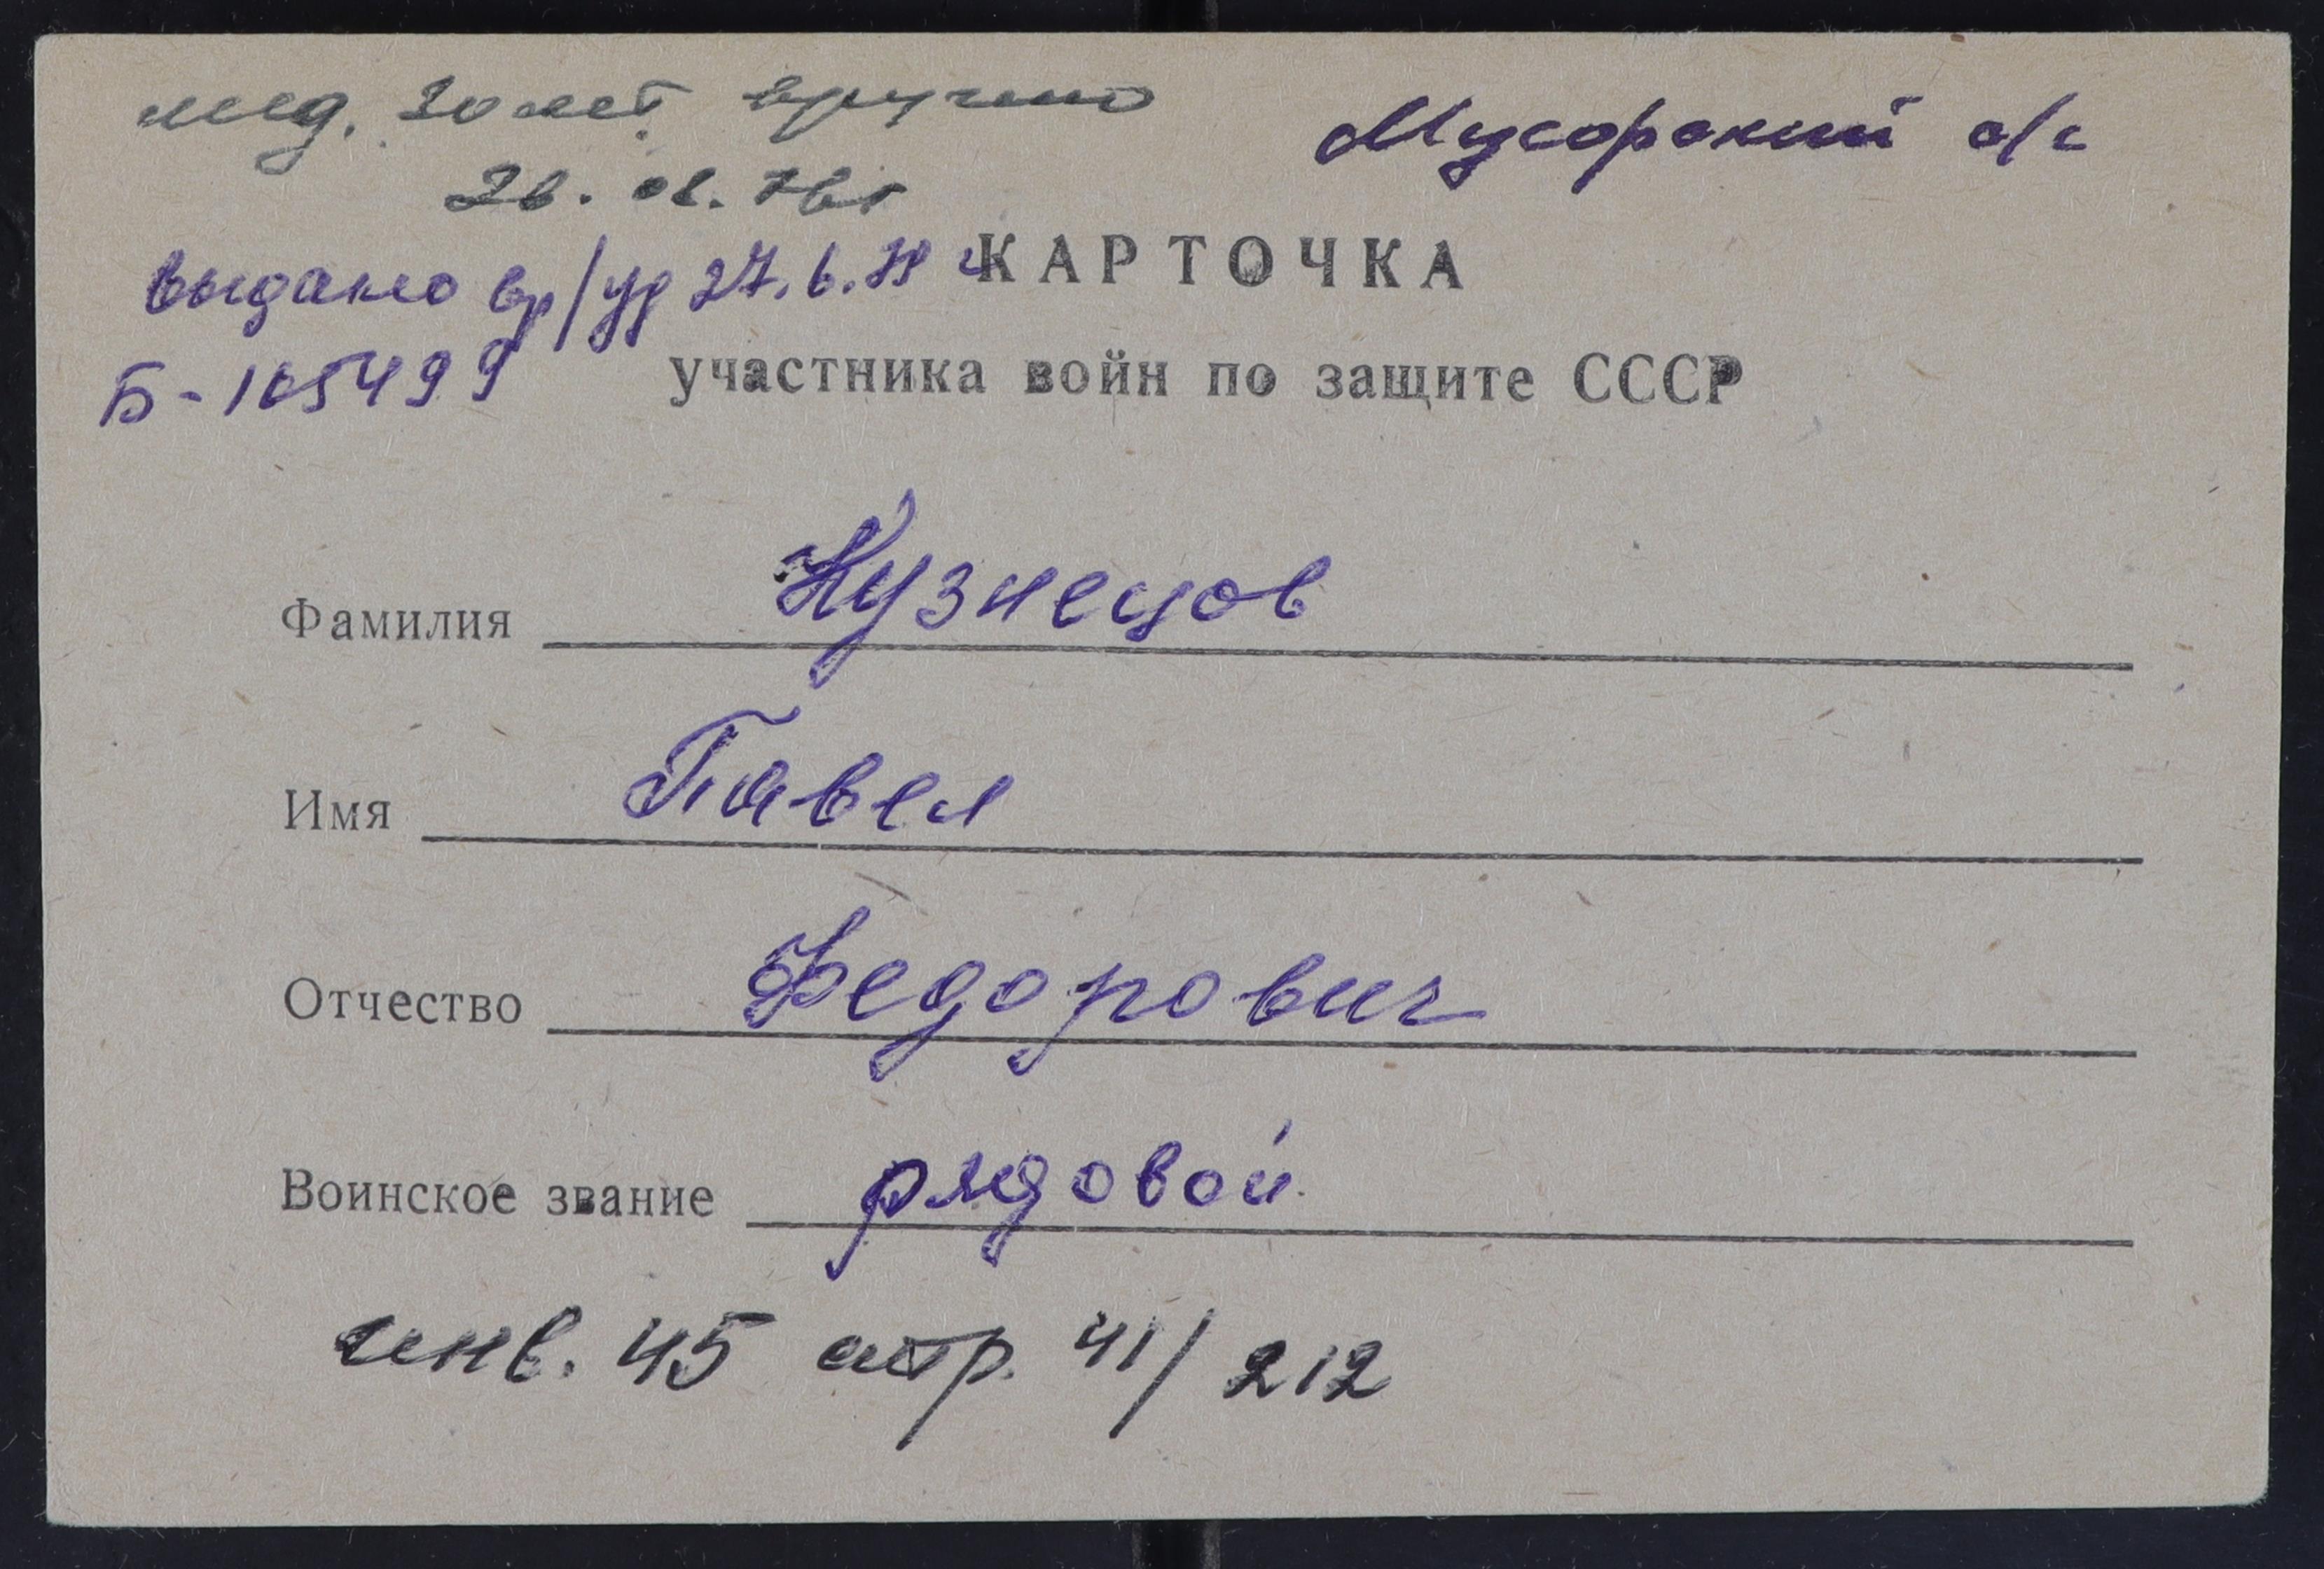 мед. 30 лет вручено
Мусорский с/с
26. 06. 76г
выдано вр/уд 27.6.79 г
КАРТОЧКА
Б-165499
участника войн по защите СССР
Фамилия Кузнецов
Имя Павел
Отчество Федорович
Воинское звание рядовой
инв. 45 стр. 41/212